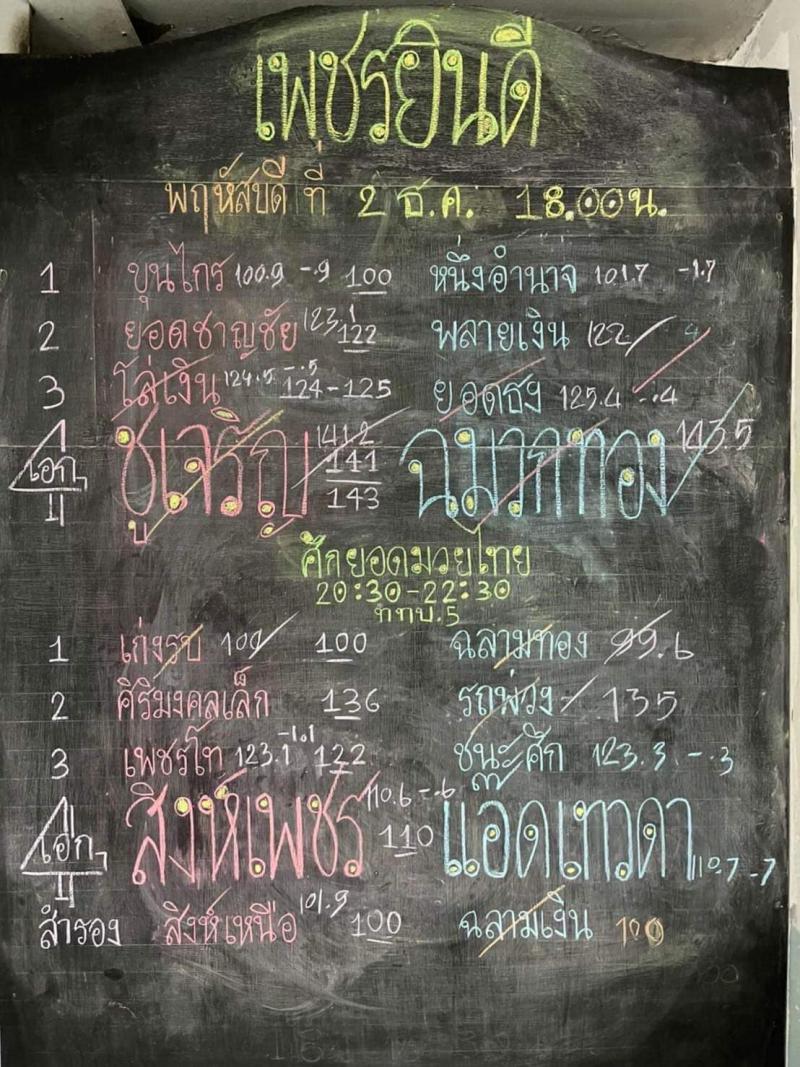 เพชรยินดี
พฤหัสบดี ที่ 2 ธ.ค. 18.00น.
1 ขุนไกร 100.9 -.9 100 หนึ่งอำนาจ 101.7 -1.7
2 ยอดชาญชัย 123.1 122 พลายเงิน 122
3 โล่เงิน 124.5 -.5 124-125 ยอดธง 125.4 -.4
เอก ชูเจริญ 141.2 141 143 ฉมวกทอง 143.5
ศึกยอดมวยไทย
20:30-22:30
ททบ.5
1 เก่งรบ 100 100 ฉลามทอง 99.6
2 ศิริมงคลเล็ก 136 รถพ่วง 135
3 เพชรโท 123.1 -1.1 122 ชนะศึก 123.3 -.3
เอก สิงห์เพชร 110.6 -.6 110 แอ๊ดเทวดา 110.7 -.7
สำรอง สิงห์เหนือ 101.9 100 ฉลามเงิน 100